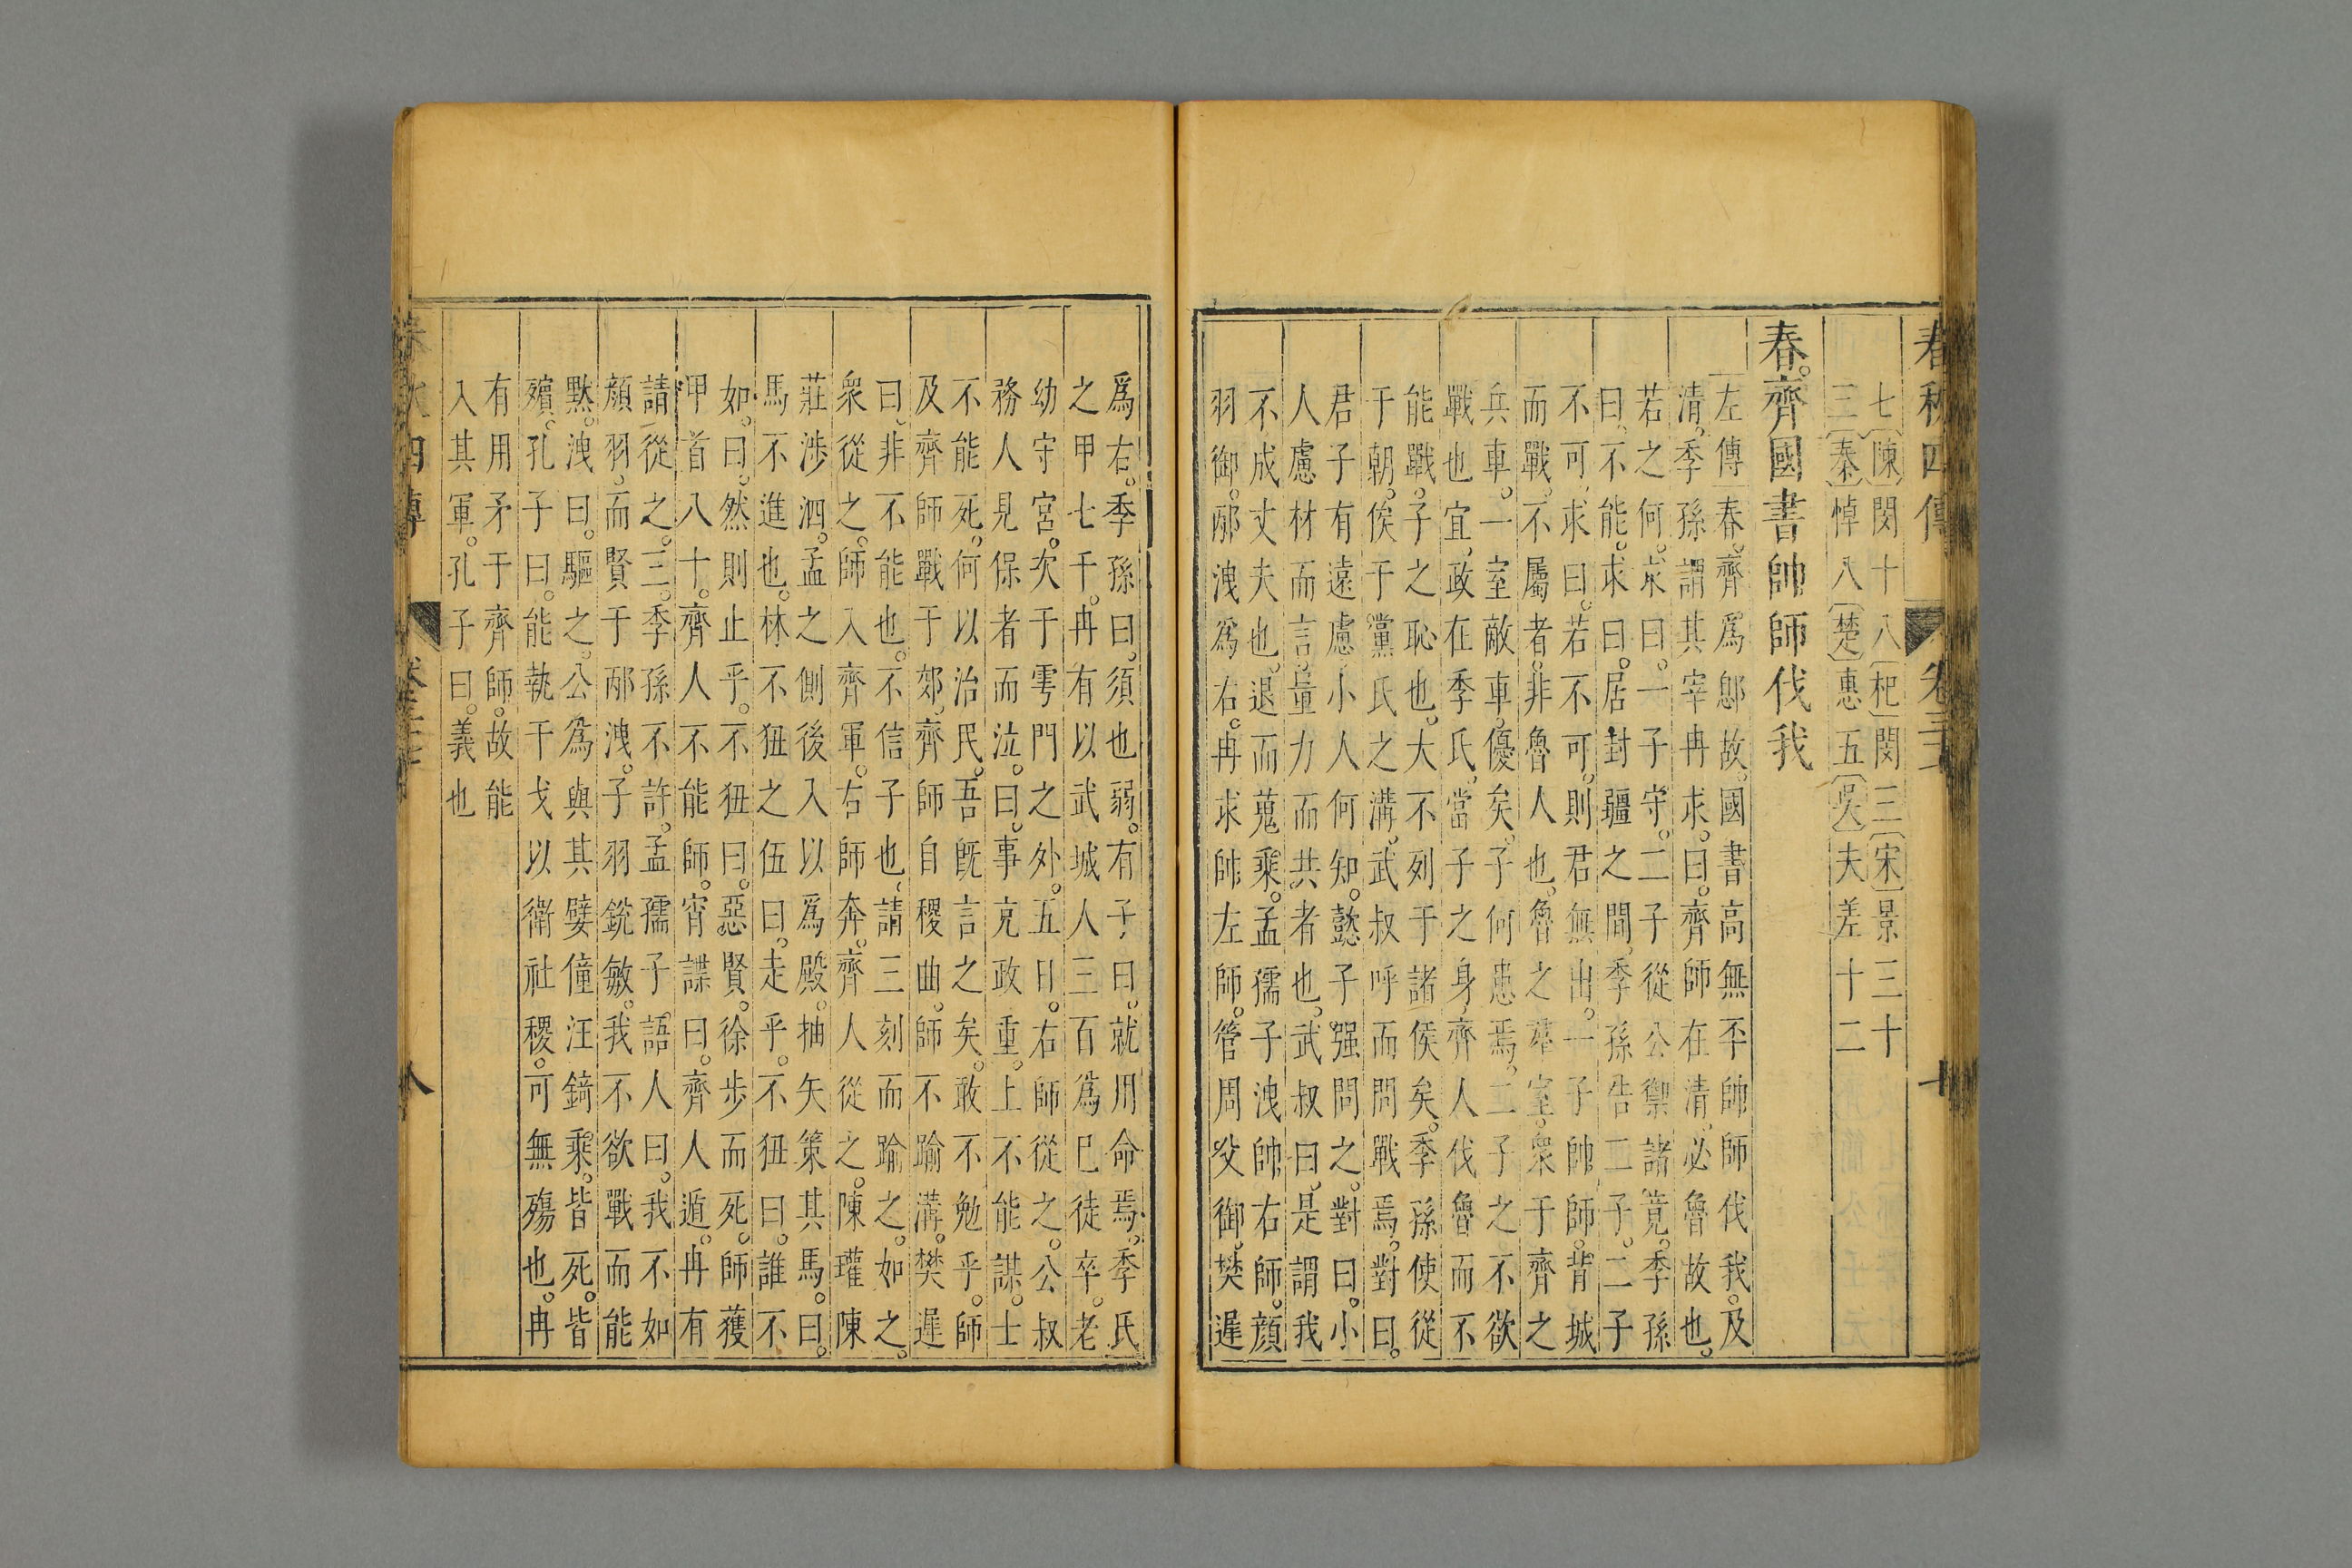 春秋四傳
卷三
七〔陳〕閔十八〔杞〕閔三〔宋〕景三十
三〔秦〕悼八〔楚〕惠五〔吳〕夫差十二
春。齊國書帥師伐我
左傳春。齊爲鄎故。國書高無㔻帥師伐我。及
清。季孫謂其宰冉求。曰。齊師在清。必魯故也。
若之何。求曰。一子守。二子從公禦諸竟。季孫
曰。不能。求曰。居封疆之間。季孫告二子。二子
不可。求曰。若不可。則君無出。一子帥師。背城
而戰。不屬者。非魯人也。魯之羣室。衆于齊之
兵車。一室敵車。優矣。子何患焉。二子之不欲
戰也宜。政在季氏。當子之身。齊人伐魯而不
能戰。子之恥也。大不列于諸侯矣。季孫使從
于朝。俟于黨氏之溝。武叔呼而問戰焉。對曰。
君子有遠慮。小人何知。懿子强問之。對曰。小
人慮材而言。量力而共者也。武叔曰。是謂我
不成丈夫也。退而蒐乘。孟孺子洩帥右師。顔
羽御。邴洩爲右。冉求帥左師。管周父御。樊遲
爲右。季孫曰。須也弱。有子曰。就用命焉。季氏
之甲七千。冉有以武城人三百爲巳徒卒。老
幼守宮。次于雩門之外。五日。右師從之。公叔
務人見保者而泣。曰。事充政重。上不能謀。士
不能死。何以治民。吾旣言之矣。敢不勉乎。師
及齊師戰于郊。齊師自稷曲。師不踰溝。樊遲
曰。非不能也。不信子也。請三刻而踰之。如之。
衆從之。師入齊軍。右師奔。齊人從之。陳瓘陳
莊涉泗。孟之側後入以爲殿。抽矢策其馬。曰。
馬不進也。林不狃之伍曰。走乎。不狃曰。誰不
如。曰。然則止乎。不狃曰。惡賢。徐步而死。師獲
甲首八十。齊人不能師。宵諜曰。齊人遁。冉有
請從之。三。季孫不許。孟孺子語人曰。我不如
顔羽。而賢于邴洩。子羽銳敏。我不欲戰而能
默。洩曰。驅之。公爲與其嬖僮汪錡乘。皆死。皆
殯。孔子曰。能執干戈以衛社稷。可無殤也。冉
有用矛于齊師。故能
入其軍。孔子曰。義也
秋四傳
八